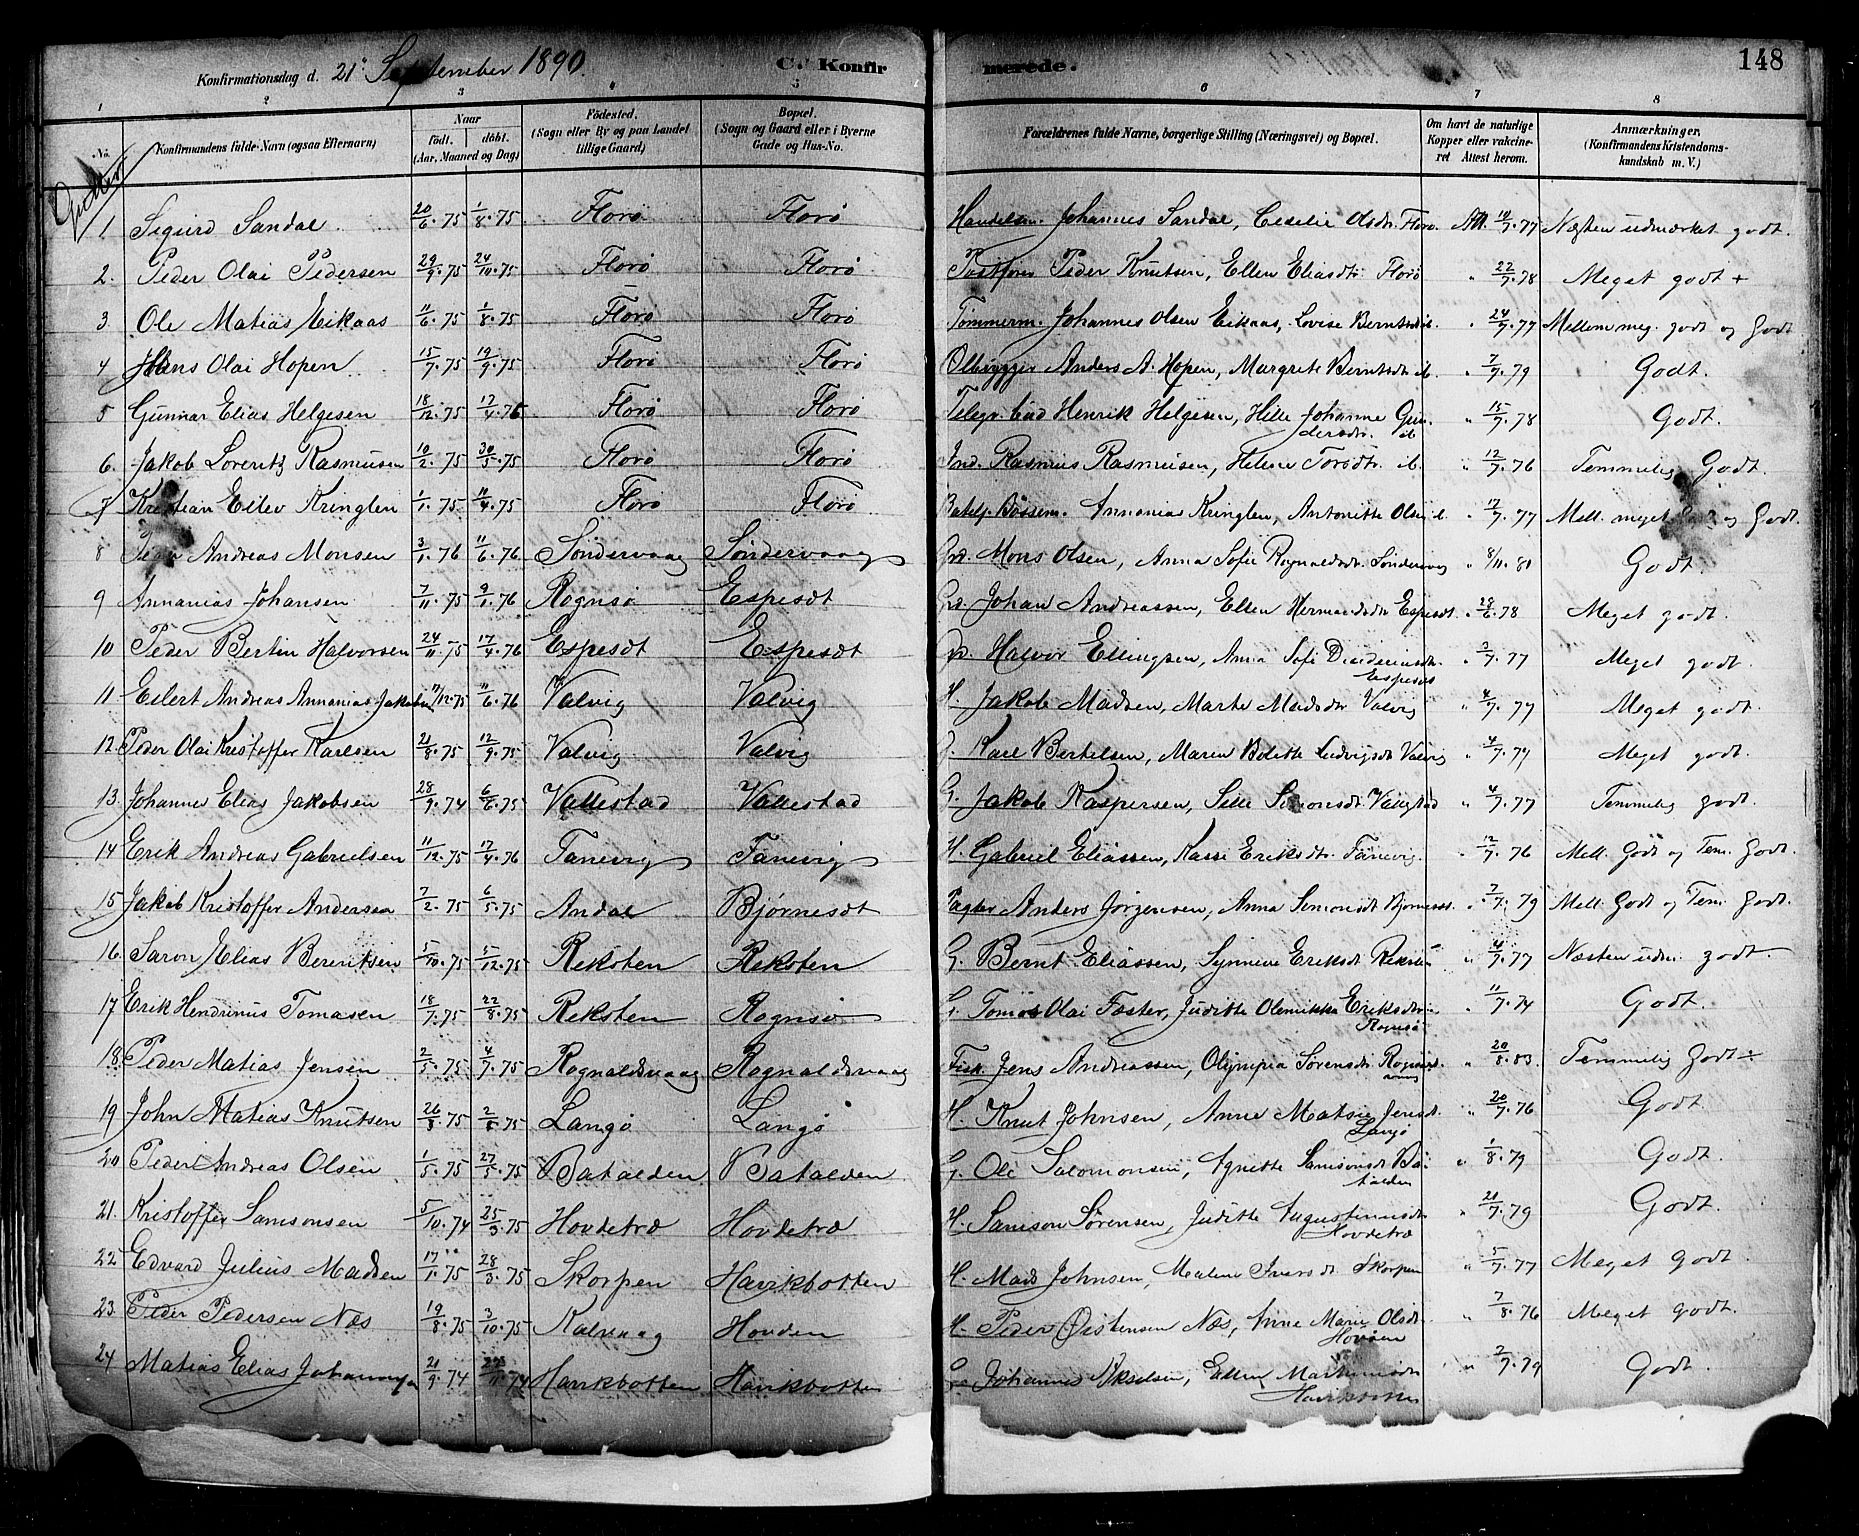 Konfirmationsdag d. 21. September 1890. C. Konfirmerede. 148
1 2 3 4 5 6 7 8
No. Konfirmandens fulde Navn (ogsaa Efternavn) Naar født. døbt. (Aar, Maaned og Dag) Fødested. (Sogn eller By og paa Landet tillige Gaard) Bopæl. (Sogn og Gaard eller i Byerne Gade og Hus-No. Forældrenes fulde Navne, borgerlige Stilling (Næringsvei) og Bopæl. Om havt de naturlige Kopper eller vakcineret Attest herom. Anmærkninger. (Konfirmandens Kristendomskundskab m. V.)
Gutter
1. Sigurd Sandal 20/6.75 1/8.75 Florø Florø Handelsm. Johannes Sandal, Cecilie Olsdtr. Florø. Att. 10/7.77 Næsten udmærket godt.
2. Peder Olai Pedersen 29/9.75 24/10.75 Florø Florø Peder Knutsen, Ellen Eliasdtr. Florø " 22/7.78 Meget godt +
3 Ole Matias Eikaas 11/6.75 1/8.75 Florø Florø Tømmerm. Johannes Olsen Eikaas, Lovise Berntsdtr ib. " 24/7.77 Mellem meg. godt og Godt
4 Hans Olai Hopen 15/7.75 19/9.75 Florø Florø Anders A. Hopen, Margrete Berntsdtr ib. " 7/7.79 Godt.
5 Gunnar Elias Helgesen 18/12.75 17/4.76 Florø Florø Telegr. bud Henrik Helgesen, Helle Johanne Gundersdtr. ib " 15/7.78 Godt.
6. Jakob Lorentz Rasmusen 10/2.75 30/5.75 Florø Florø Ind. Rasmus Rasmusen, Helene Torsdtr. ib. " 12/7.76 Temmelig Godt.
7 Kristian Ellev Kringlen 1/1.75 11/4.75 Florø Florø Bøssem. Annanias Kringlen, Antonitte Olsd. ib. " 17/7.77 Mell. meget Godt og Godt.
8 Peder Andreas Monsen 3/1.76 11/6.76 Søndervaag Søndervaag Grd. Mons Olsen, Anna Sofie Rognaldsdtr. Søndervg " 8/11.81 Godt.
9 Annanias Johansen 7/11.75 9/1.76 Rognsø Espesdt Grd. Johan Andreassen, Ellen Hermandsdtr Espesdt. " 28/6.78 Meget godt.
10 Peder Bertin Halvorsen 24/11.75 17/4.76 Espesdt Espesdt Halvor Ellingsen, Anna Sofie Diederiksdtr. Espesdt " 3/7.77 Meget godt.
11 Eilert Andreas Annanias Jakobsen 11/12.75 11/6.76 Valvig Valvig H. Jakob Madsen, Marte Madsdtr Valvig " 4/7.77 Meget godt.
12. Peder Olai Kristoffer Karlsen 21/8.75 12/9.75 Valvig Valvig Karl Bertelsen, Maren Bolette Ludvigsdtr Valvig " 4/7.77 Meget godt.
13. Johannes Elias Jakobsen 28/9.74 6/8.75 Vallestad Vallestad G. Jakob Kaspersen, Sille Simonsdtr Vallestad " 4/7.77 Temmelig godt.
14 Erik Andreas Gabrielsen 11/12.75 17/4.76 Fanevig Fanevig H. Gabriel Eliassen, Kasse Eriksdtr. Fanevig. " 12/7.76 Mell. Godt og Tem. Godt.
15 Jakob Kristoffer Andersen 7/2.75 6/5.75 Andal Bjørnesdt Anders Jørgensen, Anna Simonsdt Bjørnesdt. " 7/7.79 Mell. Godt og Tem. Godt.
16. Saron Elias Berentsen 5/10.75 5/12.75 Reksten Reksten G. Bernt Eliassen, Synneve Eriksdt Reksten " 4/7.77 Næsten udm. godt.
17 Erik Hendrinus Tomasen 18/7.75 22/8.75 Reksten Rognsø G. Tomas Olai Fæster, Juditte Olenikka Eriksdtr. Rognsø " 11/7.74 Godt.
18. Peder Matias Jensen 2/5.75 4/7.75 Rognaldsvaag Rognaldsvaag Fisk. Jens Andreassen, Olympia Sørensdtr. Rognaldsvaag " 20/8.83. Temmelig Godt ÷
19 John Matias Knutsen 26/3.75 2/5.75 Langø Langø H. Knut Johnsen, Anne Matsia Jensdt. Langø " 20/7.76 Godt.
20 Peder Andreas Olsen 1/5.75 27/5.75 Batalden Batalden G. Ole Salomonsen, Agnette Samsonsdt Batalden " 1/8.79 Godt.
21. Kristoffer Samsonsen 5/10.74 25/3.75 Hovdetræ Hovdetræ H. Samson Sørensen, Juditte Augustinusdtr Hovdetræ " 21/7.79 Godt.
22 Edvard Julius Madsen 17/1.75 28/3.75 Skorpen Havikbotten H. Mads Johnsen, Malene Iversdt Skorpen " 5/7.77 Meget godt.
23. Peder Pedersen Næs 19/8.75 3/10.75 Kalvaag Hovden H. Peder Østensen Næs, Anne Marie Olsdt. Hovden " 7/8.76 Meget godt.
24 Matias Elias Johannesen 21/9.74 Havikbotten Havikbotten G. Johannes Akselsen, Ellen Martinusdt Havikbotten " 2/7.79 Godt.